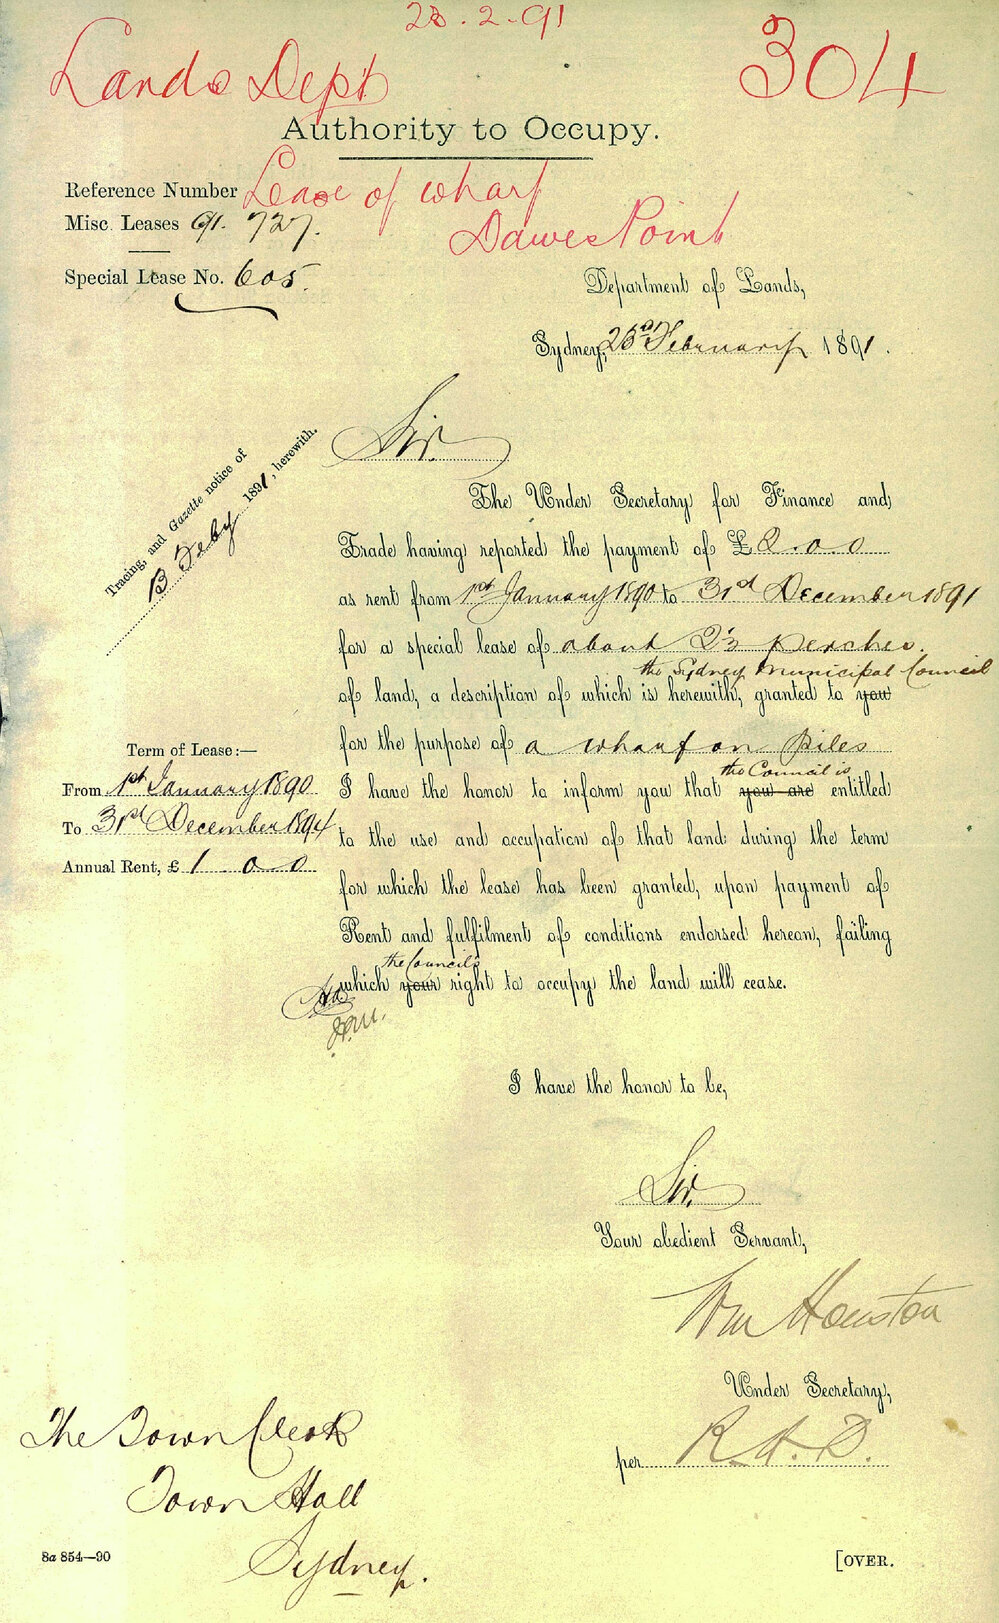 23.2.91
Lands Dept
304
Authority to Occupy.
Reference Number
Lease of wharf
Misc. Leases 91. 727.
Dawes Point
Special Lease No. 605.
Department of Lands,
Sydney, 23rd February 1891.
Tracing, and Gazette notice of
13 Feby 1891, herewith.
Sir.
The Under Secretary for Finance and
Trade having reported the payment of £2.0.0
as rent from 1st January 1890 to 31st December 1891
for a special lease of about 23 perches.
the Sydney Municipal Council
of land, a description of which is herewith, granted to you
for the purpose of a wharf on piles
the Council is
I have the honor to inform you that you are entitled
to the use and occupation of that land during the term
for which the lease has been granted, upon payment of
Rent and fulfilment of conditions endorsed hereon, failing
the Council's
which your right to occupy the land will cease.
Term of Lease:—
From 1st January 1890
To 31st December 1894
Annual Rent, £ 1 . 0 . 0
I have the honor to be,
Sir.
Your obedient Servant,
Wm Houston
Under Secretary,
per R.H.D.
The Town Clerk
Town Hall
Sydney.
8a 854—90
[OVER.